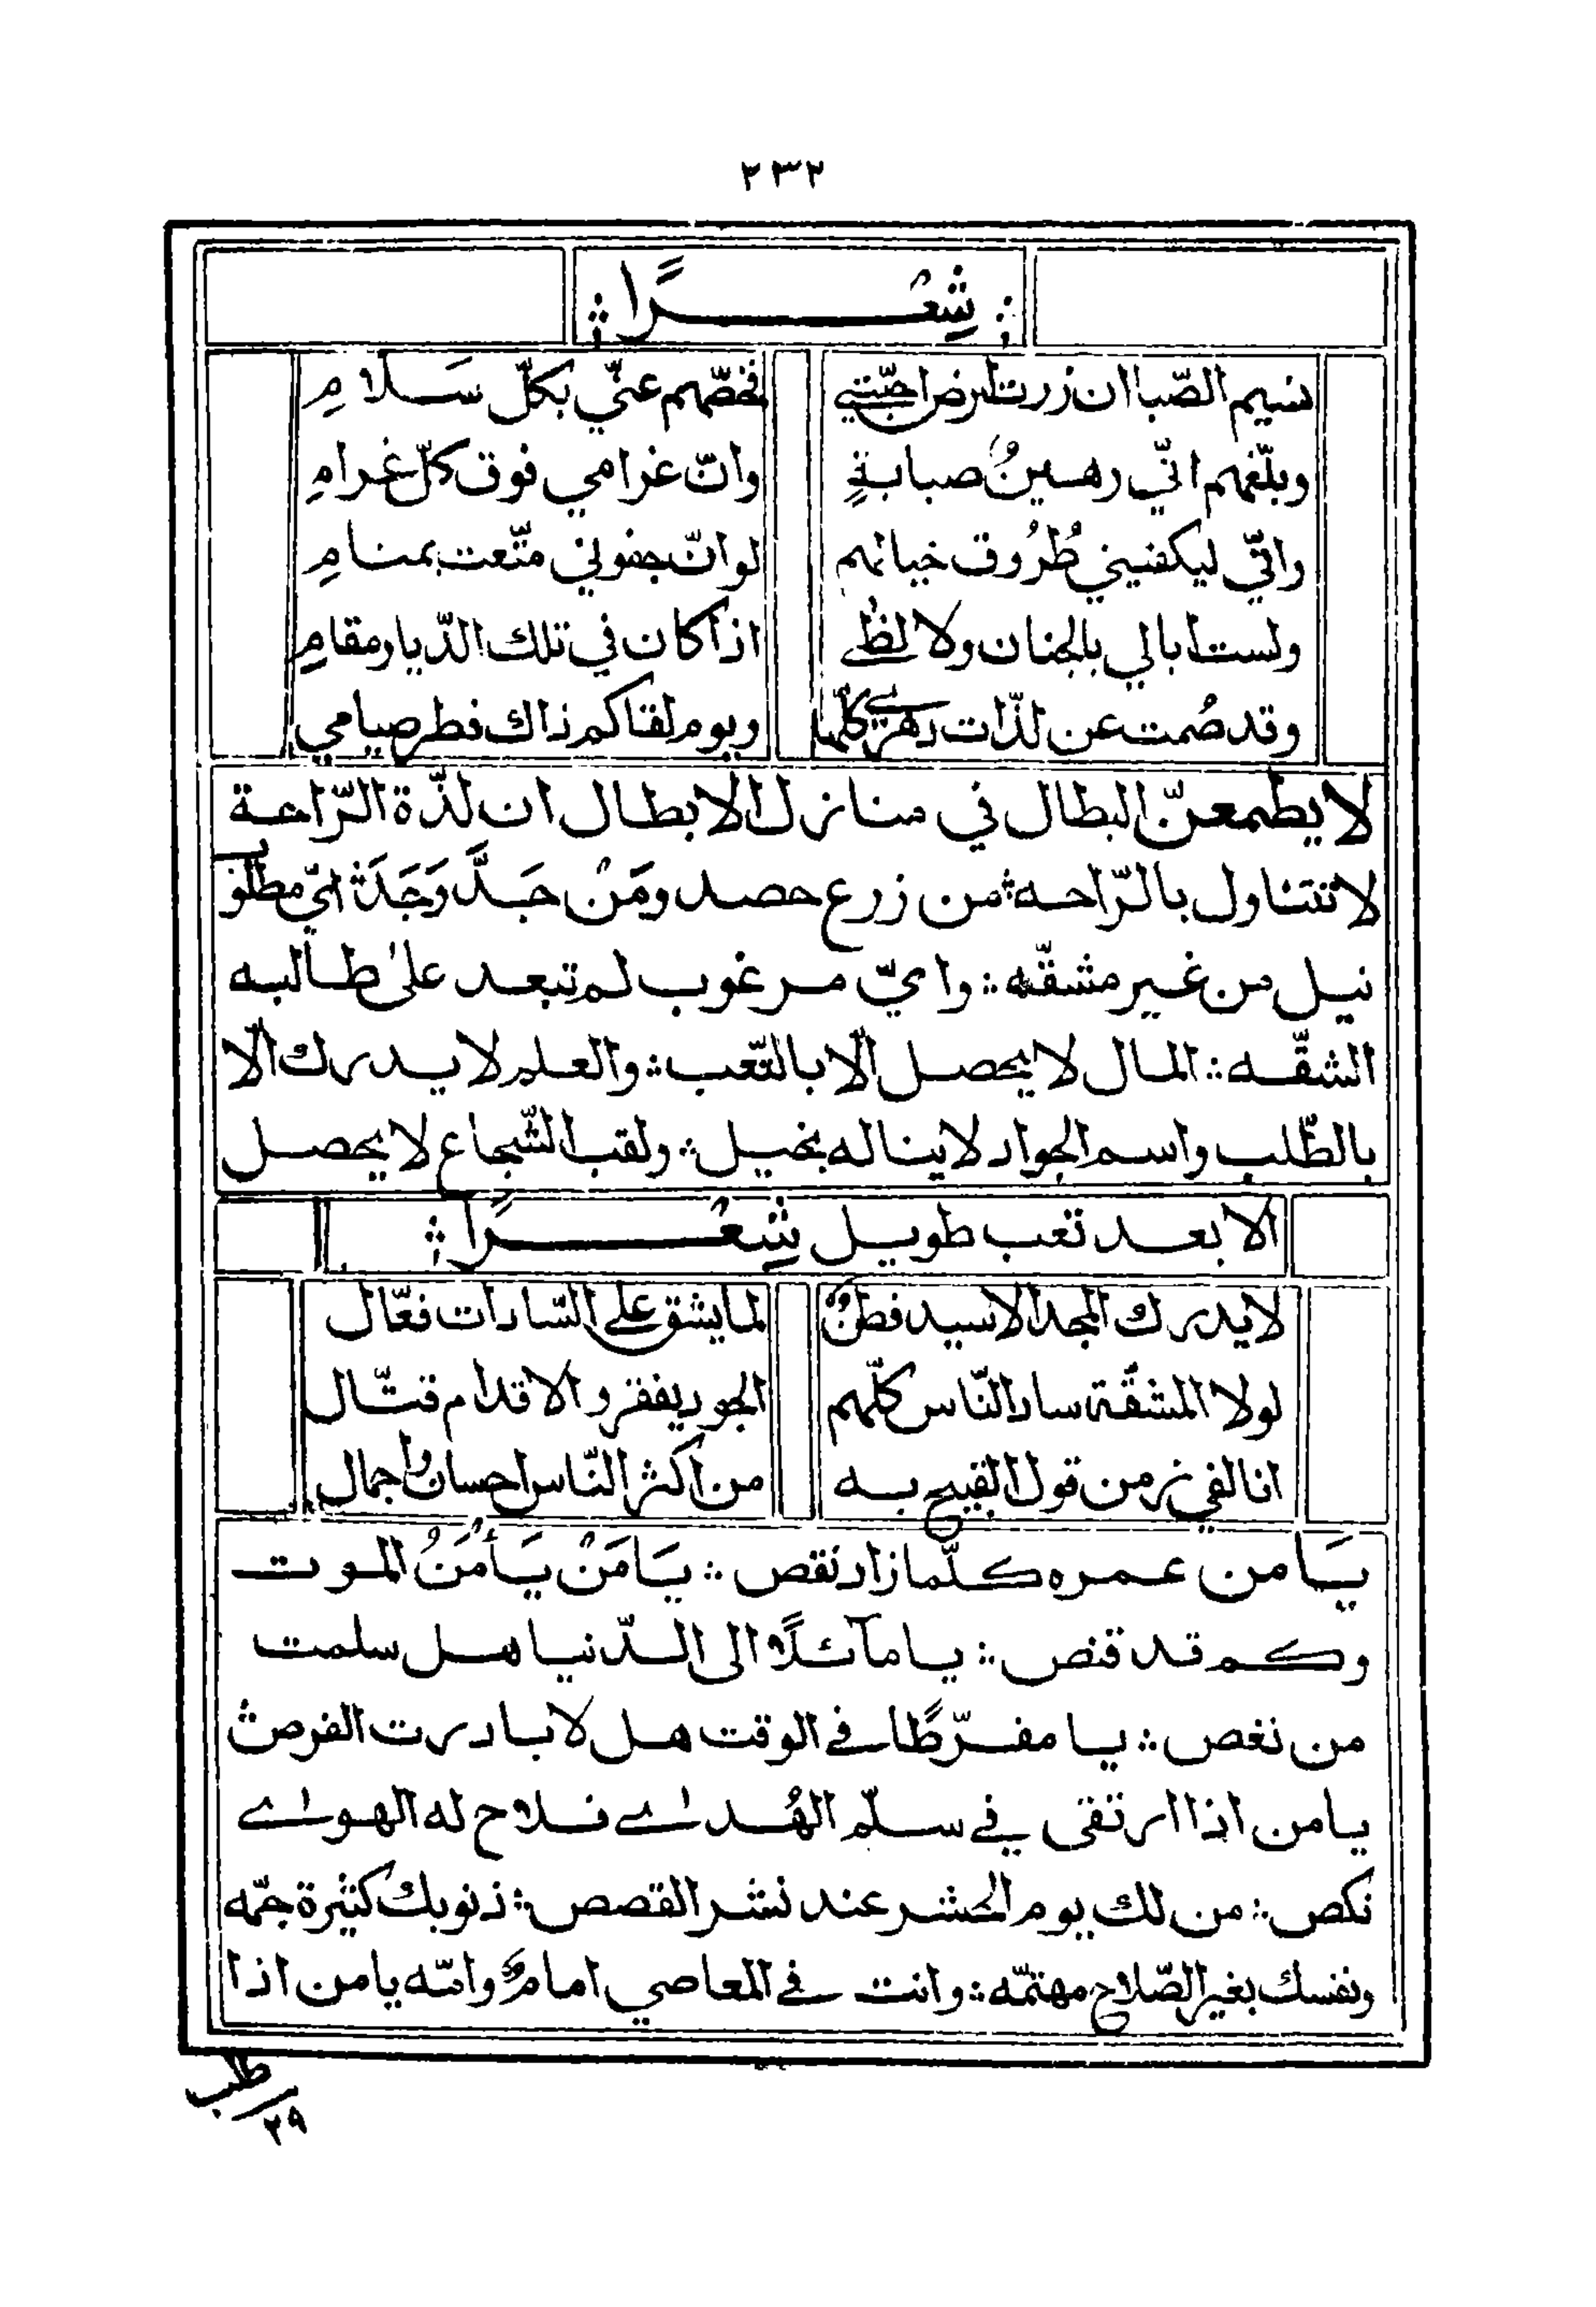 ٢٣٢
شِعْرًا
نسيم الصّبا ان زرت ارض احبّتي فخصّهم عنّي بكلّ سَلامِ
وبلّغهم انّي رهينُ صبابةٍ وانّ غرامي فوق كلّ غرامِ
وانّي ليكفيني طُرُوق خيالهم لو انّ جفوني متّعت بمنامِ
ولست ابالي بالجنان ولا لظٰى اذا كان في تلك الدّيار مقامِ
وقد صُمت عن لذّات دهري كلّها ويوم لقاكم ذاك فطر صيامي
لا يطمعنّ البطال في منازل الابطال ان لذّة الرّاحة
لا تتناول بالرّاحه ؞ من زرع حصد ومَنْ جَدَّ وَجَدَ ؞ ايّ مطلوب
نيل من غير مشقّه ؞ وايّ مرغوب لم تبعد علىٰ طالبه
الشقّه ؞ المال لا يحصل الّا بالتّعب ؞ والعلم لا يدرك الّا
بالطّلب واسم الجواد لا يناله بخيل ؞ ولقب الشّجاع لا يحصل
الا بعد تعب طويل شِعْرًا ؞
لا يدرك المجد الا سيد فطنٌ لما يشق على السّادات فعّال
لولا المشقّة ساد النّاس كلّهم الجود يفقر والاقدام قتّال
انا لفي زمن قول القبيح به من اكثر النّاس احسان واجمال
يَا من عمره كلّما زاد نقص ؞ يَا مَنْ يَأمَنُ الموت
وكم قد قنص ؞ يا مآئلًا الى الدّنيا هل سلمت
من نغص ؞ يا مفرّطًا في الوقت هل لا بادرت الفرص ؞
يا من اذا ارتقى في سلّم الهُدٰى فلاح له الهوٰى
نكص ؞ من لك يوم الحشر عند نشر القصص ؞ ذنوبك كثيرة جمّه
ونفسك بغير الصّلاح مهتمّه ؞ وانت في المعاصي امامٌ وامّه يا من اذا
طلب
٢٩